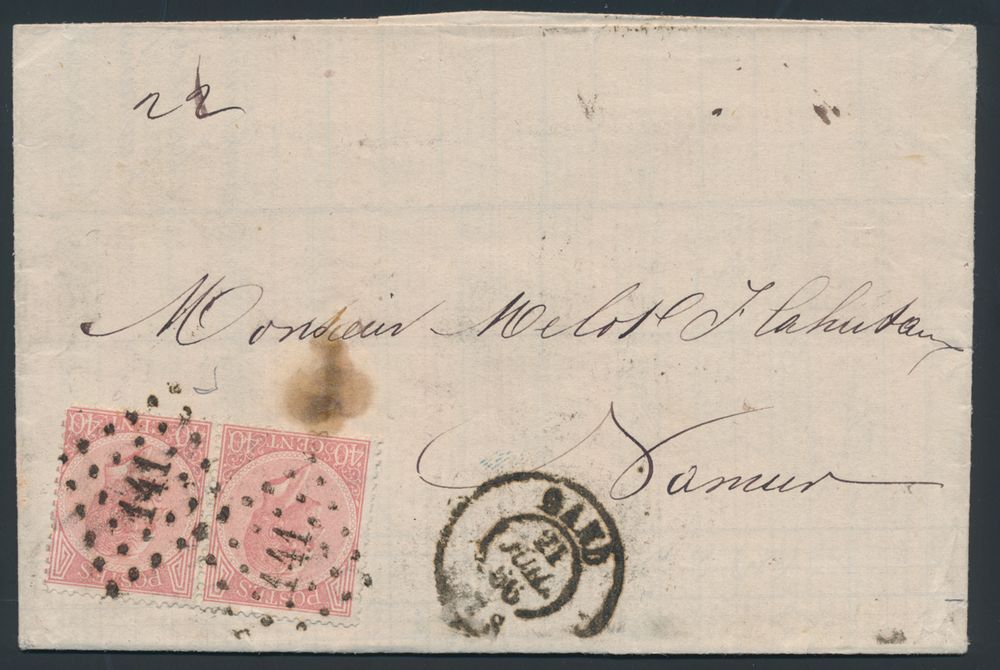 22
Monsieur Melot Flahutaux
Namur
40 CENT. 40
POSTES
141
40 CENT. 40
POSTES
141
GAND
21
JUIL